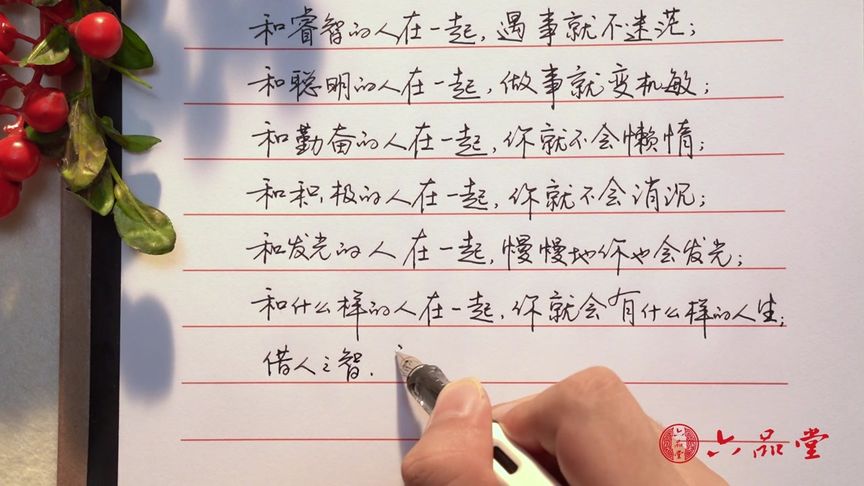 和睿智的人在一起，遇事就不迷茫；
和聪明的人在一起，做事就变机敏；
和勤奋的人在一起，你就不会懒惰；
和积极的人在一起，你就不会消沉；
和发光的人在一起，慢慢地你也会发光；
和什么样的人在一起，你就会有什么样的人生；
借人之智.
六品堂
六品堂